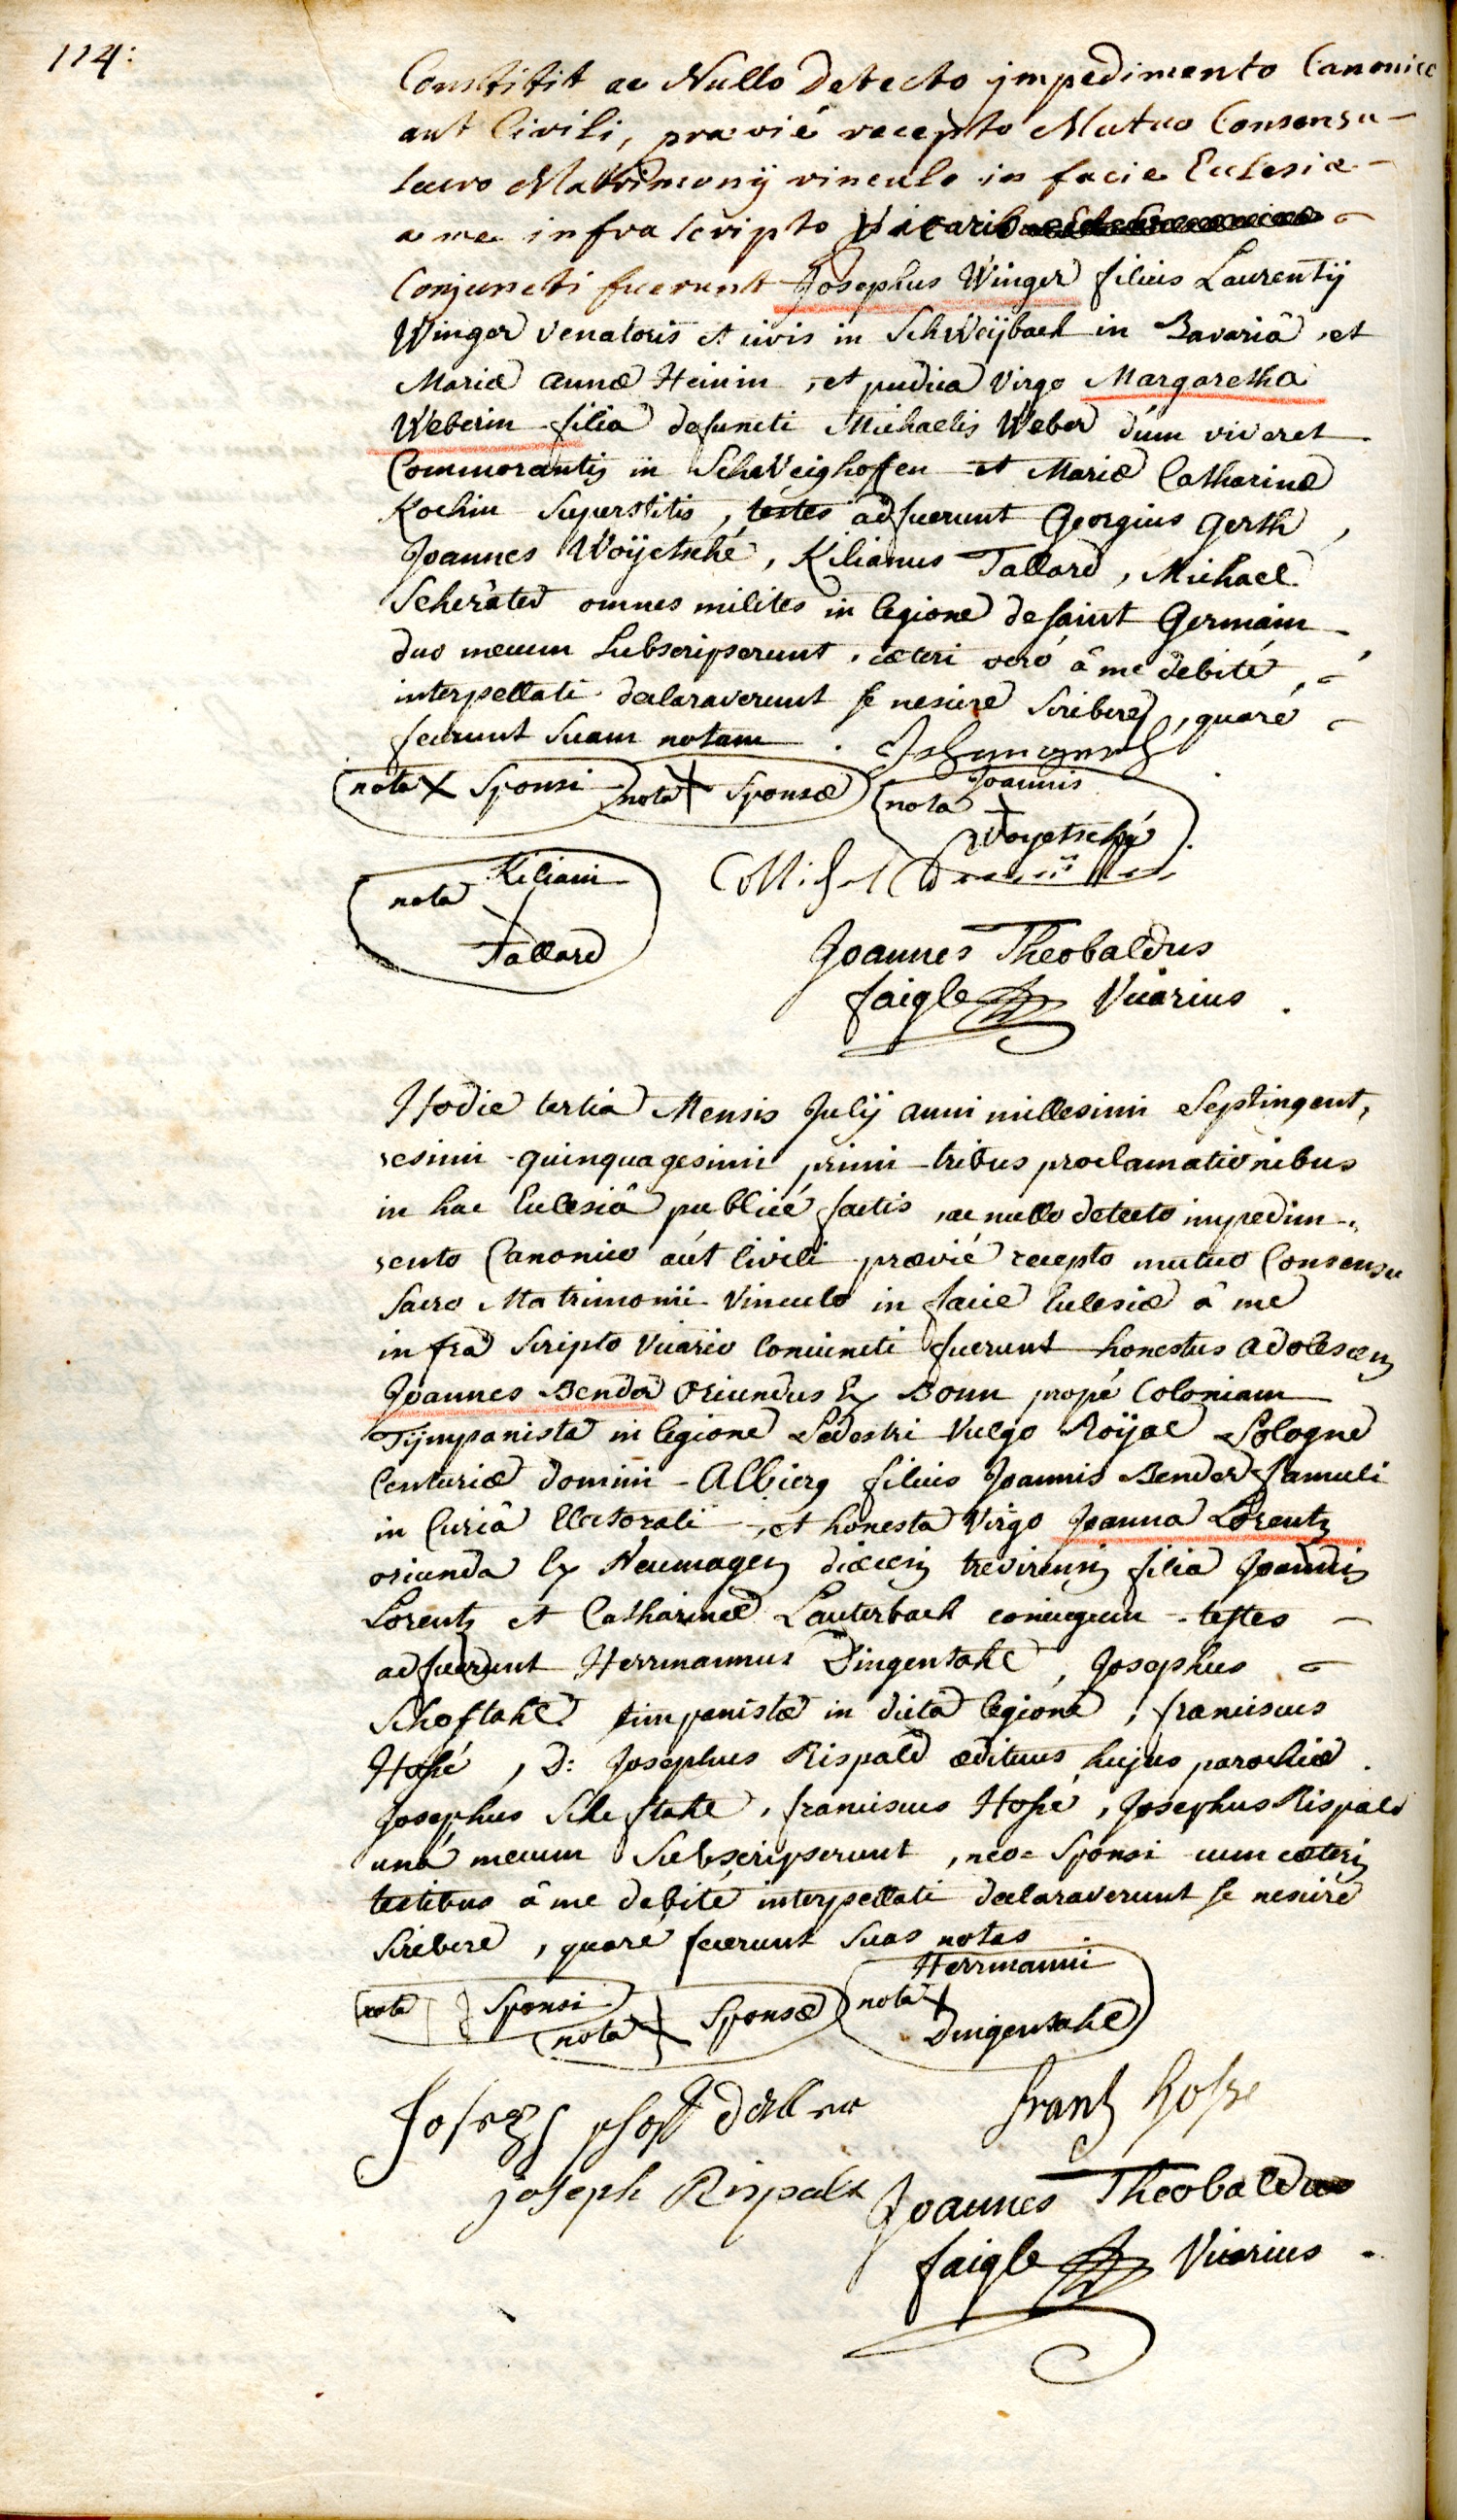 114:
Constitit ac Nullo detecto impedimento Canonico
aut Civili, praevié recepto Mutuo Consensu
sacro Matrimonÿ vinculo in facie Ecclesiae
a me infra scripto Vicario
Conjuncti fuerunt Josephus Winger filius Laurentÿ
Winger venatoris et civis in Schweÿbach in Bavariâ, et
Mariae annae Heinin, et pudica virgo Margaretha
Weberin filia defuncti Michaelis Weber dum viveret
Commorantis in Schweighoffen et Mariae Catharinae
Kochin Superstitis, testes adfuerunt Georgius Gersh,
Joannes Woÿetsché, Kilianus Tallard, Michael
Scherater omnes milites in legione de saint Germain
duo mecum Subscripserunt, caeteri veró â me debité
interpellati declaraverunt se nescire Scribere, quaré
fecerunt Suam notam.
nota X Sponsi nota Sponsae nota Joannis
Woyetsché
nota Kiliani
Tallard
Joannes Theobaldus
faigle Vicarius.
Hodie tertia Mensis Julÿ anni millesimi Septingent,
esimi quinquagesimi primi tribus proclamationibus
in hac Ecclesiâ publicé factis, ac nullo detecto impedim
ento Canonico aút Civili praevié recepto mutuo Consensu
Sacro Matrimonii Vinculo in facie Ecclesiae â me
infra Scripto Vicario Coniuncti fuerunt honestus adolescens
Joannes Bender oriundus Ex Bonn propé Coloniam
Tÿmpanista in legione Pedestri Vulgo Roÿal Pologne
Centuriae domini Albiers filius Joannis Bender famuli
in Curiâ Electorali, et honesta Virgo Joanna Lorentz
oriunda Ex Neumagen diaecesis trevirensis filia Joannis
Lorentz et Catharinae Lauterbach coniugum testes
adfuerunt Herrmannus Dingenstahl, Josephus
Schoftahl timpanistae in dicta legione, franciscus
Hossé, D: Josephus Rispald aedituus hujus parochiae.
Josephus Scheftahl, franciscus Hossé, Josephus Rispald
uná mecum Subscripserunt, neo Sponsi cum caeteris
testibus â me debité interpellati declaraverunt se nescire
Scribere, quaré fecerunt Suas notas
nota Sponsi nota Sponsae nota Herrmanni
Dingenstahl
frantz Hosse
joseph Rispald Joannes Theobaldus
faigle Vicarius.